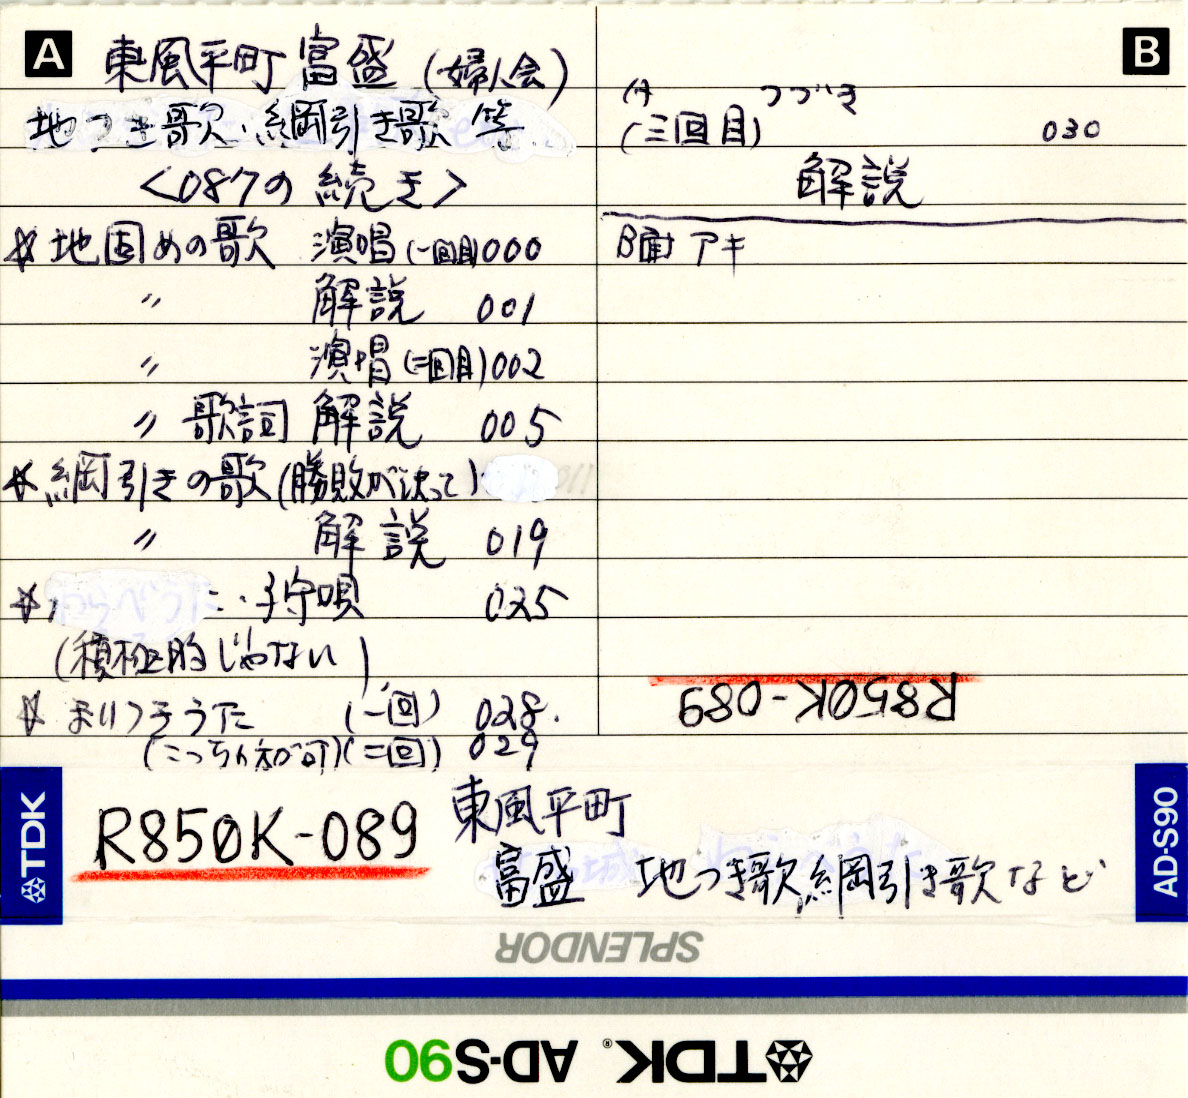 A
東風平町 富盛 (婦人会)
地つき歌・綱引き歌 等
<087の続き>
☆地固めの歌 演唱(一回目)000
〃 解説 001
〃 演唱(二回目)002
〃 歌詞 解説 005
☆綱引きの歌(勝敗が決って)
〃 解説 019
☆ 子守唄 025
(積極的じゃない)
☆まりつきうた (一回) 028.
(こっちん知念町)(二回) 029
B
(A つづき
(三回目) 030
解説
B面 アキ
R850K-089
TDK
R850K-089
東風平町
富盛 地つき歌,綱引き歌など
AD-S90
SPLENDOR
TDK® AD-S90